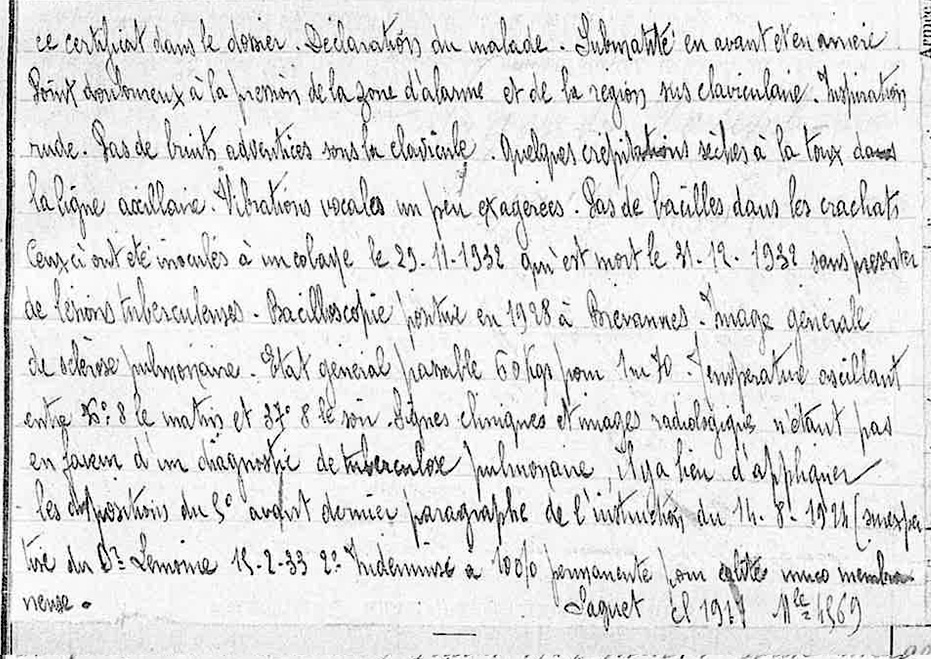 ce certificat dans le dossier. Déclarations du malade. Submatité en avant et en arrière.
Point douloureux à la pression de la zone d'alarme et de la region sus claviculaire. Inspiration
rude. Pas de bruits adventices sous la clavicule. Quelques crepitations sèches à la toux dans
la ligne axillaire. Vibrations vocales un peu exagerees. Pas de bacilles dans les crachats
Ceux ci ont été inoculés à un cobaye le 29-11-1932 qu'est mort le 31-12-1932 sans presenter
de lésions tuberculeuses. Bacilloscopie positive en 1928 à Brevannes. Image générale
de sclérose pulmonaire. Etat général passable 60 kgs pour 1m70. Temperature oscillant
entre 36°8 le matin et 37°8 le soir. Signes cliniques et images radiologiques n'étant pas
en faveur d'un diagnostic de tuberculose pulmonaire, il y a lieu d'appliquer
les dispositions du 5° avant dernier paragraphe de l'instruction du 14-8-1924 (surexper
tise du Dr Lemoine 15-2-33 2° Indemnisé à 100% permanente pour colite muco membra
neuse.
Saguet Cl 1917 Mle 4569
Armée